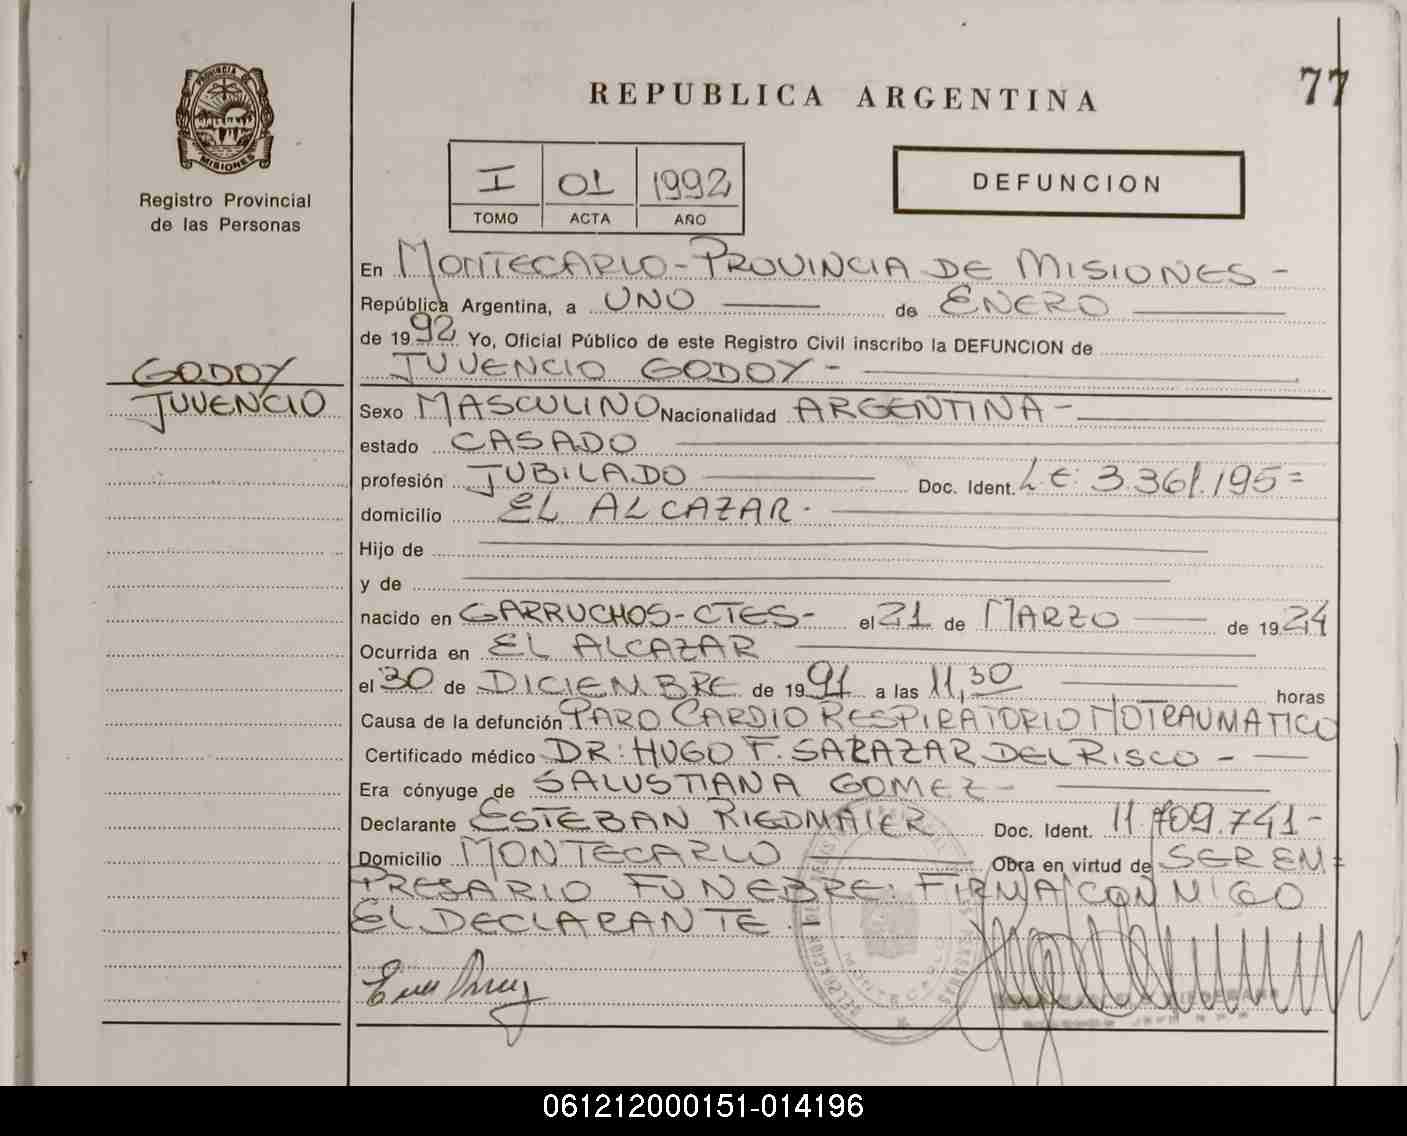 77
REPUBLICA ARGENTINA
PROVINCIA DE
MISIONES
Registro Provincial
de las Personas
I 01 1992
TOMO ACTA AÑO
DEFUNCION
En MONTECARLO - PROVINCIA DE MISIONES -
República Argentina, a UNO de ENERO
de 1992 Yo, Oficial Público de este Registro Civil inscribo la DEFUNCION de
JUVENCIO GODOY -
GODOY
JUVENCIO
Sexo MASCULINO Nacionalidad ARGENTINA -
estado CASADO
profesión JUBILADO Doc. Ident. L.E: 3.361.195=
domicilio EL ALCAZAR.
Hijo de
y de
nacido en GARRUCHOS - CTES - el 21 de MARZO de 1924
Ocurrida en EL ALCAZAR
el 30 de DICIEMBRE de 1991 a las 11,30 horas
Causa de la defunción PARO CARDIO RESPIRATORIO NOTRAUMATICO
Certificado médico DR: HUGO F. SALAZAR DEL RISCO -
Era cónyuge de SALUSTIANA GOMEZ -
Declarante ESTEBAN RIEDMAIER Doc. Ident. 11.709.741-
Domicilio MONTECARLO Obra en virtud de SER EM=
PRESARIO FUNEBRE: FIRMA CONMIGO
EL DECLARANTE.-
MONTECARLO
061212000151-014196